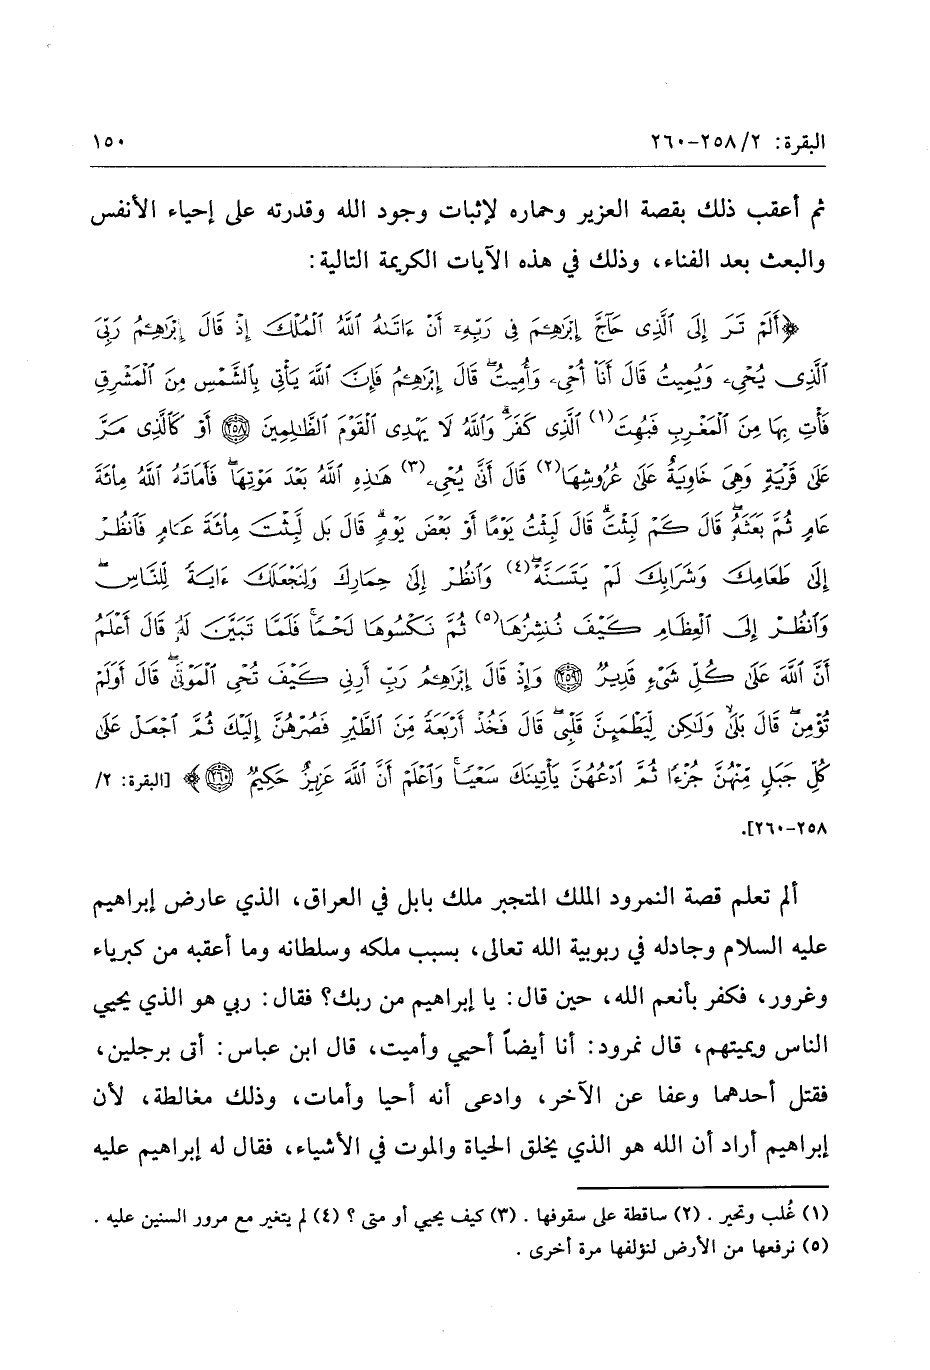 البقرة: ٢/ ٢٥٨-٢٦٠
١٥٠
ثم أعقب ذلك بقصة العزير وحماره لإثبات وجود الله وقدرته على إحياء الأنفس
والبعث بعد الفناء، وذلك في هذه الآيات الكريمة التالية:
﴿أَلَمْ تَرَ إِلَى ٱلَّذِى حَآجَّ إِبْرَٰهِـۧمَ فِى رَبِّهِۦٓ أَنْ ءَاتَىٰهُ ٱللَّهُ ٱلْمُلْكَ إِذْ قَالَ إِبْرَٰهِـۧمُ رَبِّىَ
ٱلَّذِى يُحْىِۦ وَيُمِيتُ قَالَ أَنَا۠ أُحْىِۦ وَأُمِيتُ ۖ قَالَ إِبْرَٰهِـۧمُ فَإِنَّ ٱللَّهَ يَأْتِى بِٱلشَّمْسِ مِنَ ٱلْمَشْرِقِ
فَأْتِ بِهَا مِنَ ٱلْمَغْرِبِ فَبُهِتَ(١) ٱلَّذِى كَفَرَ ۗ وَٱللَّهُ لَا يَهْدِى ٱلْقَوْمَ ٱلظَّٰلِمِينَ ٢٥٨ أَوْ كَٱلَّذِى مَرَّ
عَلَىٰ قَرْيَةٍ وَهِىَ خَاوِيَةٌ عَلَىٰ عُرُوشِهَا(٢) قَالَ أَنَّىٰ يُحْىِۦ(٣) هَٰذِهِ ٱللَّهُ بَعْدَ مَوْتِهَا ۖ فَأَمَاتَهُ ٱللَّهُ مِا۟ئَةَ
عَامٍ ثُمَّ بَعَثَهُۥ ۖ قَالَ كَمْ لَبِثْتَ ۖ قَالَ لَبِثْتُ يَوْمًا أَوْ بَعْضَ يَوْمٍ ۖ قَالَ بَل لَّبِثْتَ مِا۟ئَةَ عَامٍ فَٱنظُرْ
إِلَىٰ طَعَامِكَ وَشَرَابِكَ لَمْ يَتَسَنَّهْ ۖ(٤) وَٱنظُرْ إِلَىٰ حِمَارِكَ وَلِنَجْعَلَكَ ءَايَةً لِّلنَّاسِ ۖ
وَٱنظُرْ إِلَى ٱلْعِظَامِ كَيْفَ نُنشِزُهَا(٥) ثُمَّ نَكْسُوهَا لَحْمًا ۚ فَلَمَّا تَبَيَّنَ لَهُۥ قَالَ أَعْلَمُ
أَنَّ ٱللَّهَ عَلَىٰ كُلِّ شَىْءٍ قَدِيرٌ ٢٥٩ وَإِذْ قَالَ إِبْرَٰهِـۧمُ رَبِّ أَرِنِى كَيْفَ تُحْىِ ٱلْمَوْتَىٰ ۖ قَالَ أَوَلَمْ
تُؤْمِن ۖ قَالَ بَلَىٰ وَلَٰكِن لِّيَطْمَئِنَّ قَلْبِى ۖ قَالَ فَخُذْ أَرْبَعَةً مِّنَ ٱلطَّيْرِ فَصُرْهُنَّ إِلَيْكَ ثُمَّ ٱجْعَلْ عَلَىٰ
كُلِّ جَبَلٍ مِّنْهُنَّ جُزْءًا ثُمَّ ٱدْعُهُنَّ يَأْتِينَكَ سَعْيًا ۚ وَٱعْلَمْ أَنَّ ٱللَّهَ عَزِيزٌ حَكِيمٌ ٢٦٠﴾ [البقرة: ٢/
٢٥٨-٢٦٠].
ألم تعلم قصة النمرود الملك المتجبر ملك بابل في العراق، الذي عارض إبراهيم
عليه السلام وجادله في ربوبية الله تعالى، بسبب ملكه وسلطانه وما أعقبه من كبرياء
وغرور، فكفر بأنعم الله، حين قال: يا إبراهيم من ربك؟ فقال: ربي هو الذي يحيي
الناس ويميتهم، قال نمرود: أنا أيضاً أحيي وأميت، قال ابن عباس: أتى برجلين،
فقتل أحدهما وعفا عن الآخر، وادعى أنه أحيا وأمات، وذلك مغالطة، لأن
إبراهيم أراد أن الله هو الذي يخلق الحياة والموت في الأشياء، فقال له إبراهيم عليه
(١) غُلب وتحير. (٢) ساقطة على سقوفها. (٣) كيف يحيي أو متى؟ (٤) لم يتغير مع مرور السنين عليه.
(٥) نرفعها من الأرض لنؤلفها مرة أخرى.